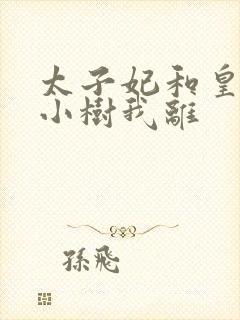 太子妃和皇
小樹我離
孫飛